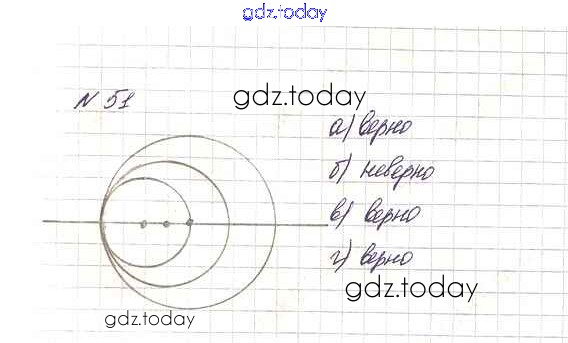 gdz.today
N 51
gdz.today
а) верно
б) неверно
в) верно
г) верно
gdz.today
gdz.today